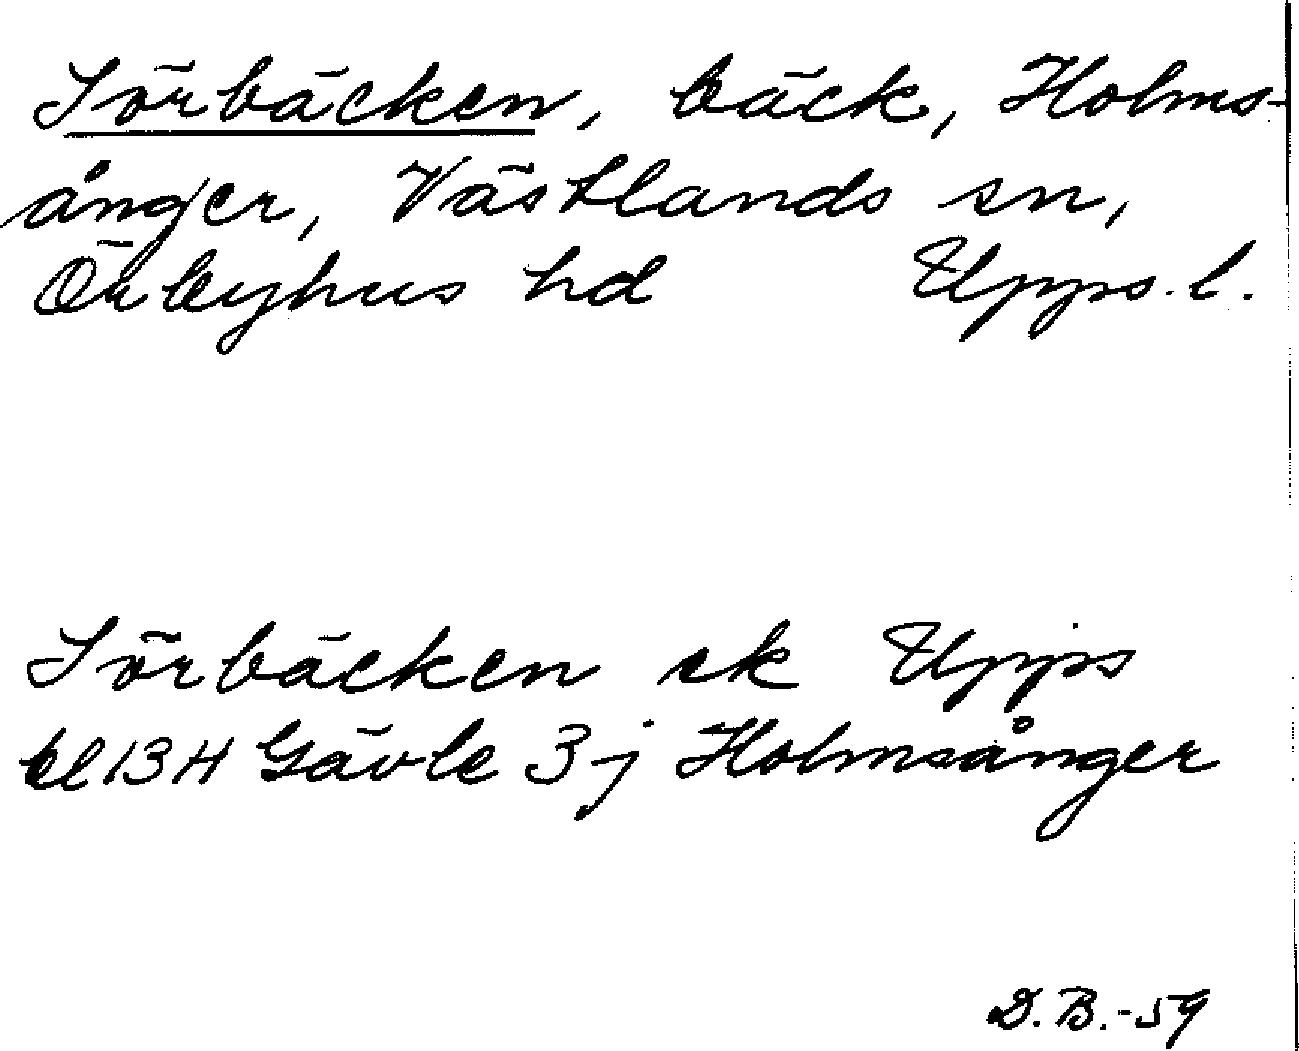 Sörbäcken, bäck, Holms-
ånger, Västlands sn,
Örbyhus hd Upps. l.
Sörbäcken ek Upps
bl 13 H Gävle 3 j Holmsånger
D. B. -59